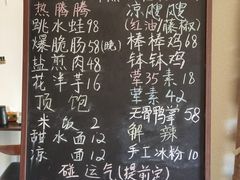 热腾腾
跳水蛙98
爆脆肠58(晚)
盐煎肉48
花洋芋16
顶饱
米饭2
甜水面12
凉面12
凉飕飕
(红油/藤椒)
棒棒鸡68
钵钵鸡
荤35素18
荤素42
无骨鸭掌58
解辣
手工冰粉10
碰运气(提前定)